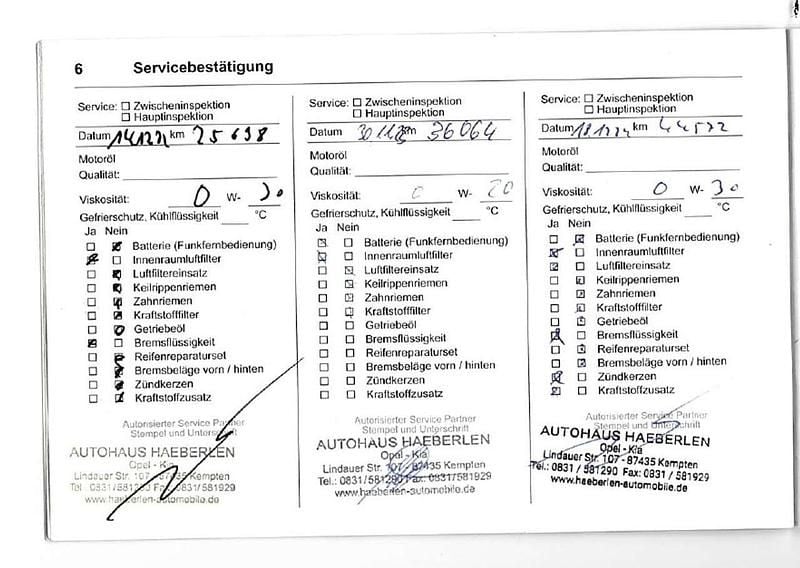 6 Servicebestätigung
Service: ☐ Zwischeninspektion
☐ Hauptinspektion
Datum 14.12.22 km 25 698
Motoröl
Qualität:
Viskosität: 0 W- 30
Gefrierschutz, Kühlflüssigkeit °C
Ja Nein
Batterie (Funkfernbedienung)
Innenraumluftfilter
Luftfiltereinsatz
Keilrippenriemen
Zahnriemen
Kraftstofffilter
Getriebeöl
Bremsflüssigkeit
Reifenreparaturset
Bremsbeläge vorn / hinten
Zündkerzen
Kraftstoffzusatz
Autorisierter Service Partner
Stempel und Unterschrift
AUTOHAUS HAEBERLEN
Opel - Kia
Lindauer Str. 107 - 87435 Kempten
Tel.: 0831/581290 Fax: 0831/581929
www.haeberlen-automobile.de
Service: ☐ Zwischeninspektion
☐ Hauptinspektion
Datum 30.11.23 km 36064
Motoröl
Qualität:
Viskosität: 0 W- 20
Gefrierschutz, Kühlflüssigkeit °C
Ja Nein
Batterie (Funkfernbedienung)
Innenraumluftfilter
Luftfiltereinsatz
Keilrippenriemen
Zahnriemen
Kraftstofffilter
Getriebeöl
Bremsflüssigkeit
Reifenreparaturset
Bremsbeläge vorn / hinten
Zündkerzen
Kraftstoffzusatz
Autorisierter Service Partner
Stempel und Unterschrift
AUTOHAUS HAEBERLEN
Opel - Kia
Lindauer Str. 107 - 87435 Kempten
Tel.: 0831/581290 Fax: 0831/581929
www.haeberlen-automobile.de
Service: ☐ Zwischeninspektion
☐ Hauptinspektion
Datum km
Motoröl
Qualität:
Viskosität: 0 W- 30
Gefrierschutz, Kühlflüssigkeit °C
Ja Nein
Batterie (Funkfernbedienung)
Innenraumluftfilter
Luftfiltereinsatz
Keilrippenriemen
Zahnriemen
Kraftstofffilter
Getriebeöl
Bremsflüssigkeit
Reifenreparaturset
Bremsbeläge vorn / hinten
Zündkerzen
Kraftstoffzusatz
Autorisierter Service Partner
Stempel und Unterschrift
AUTOHAUS HAEBERLEN
Opel - Kia
Lindauer Str. 107 - 87435 Kempten
Tel.: 0831 / 581290 Fax: 0831 / 581929
www.haeberlen-automobile.de